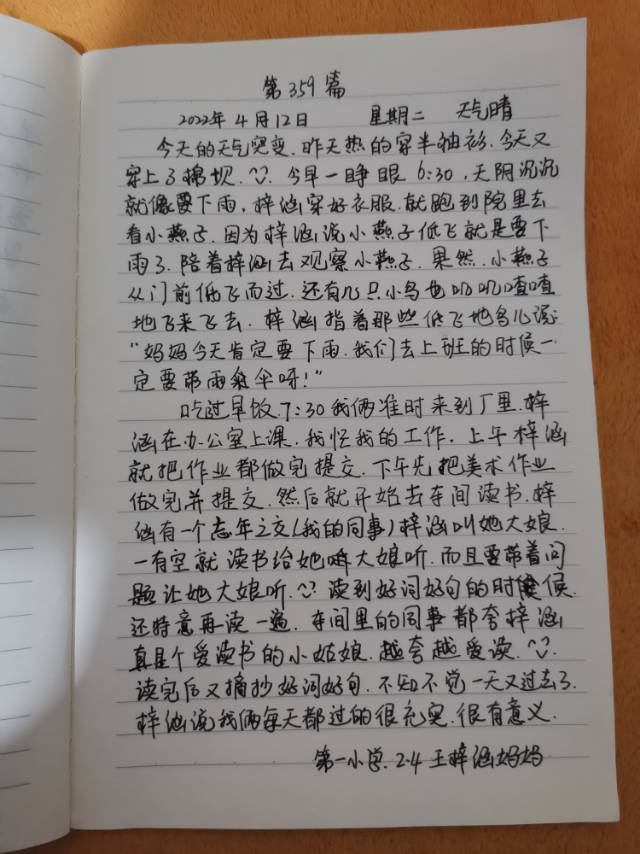 第359篇
2022年4月12日 星期二 天气晴
今天的天气突变.昨天热的穿半袖衫.今天又
穿上了棉坝.今早一睁眼6:30,天阴沉沉
就像要下雨,梓涵穿好衣服.就跑到院里去
看小燕子.因为梓涵说小燕子低飞就是要下
雨了.陪着梓涵去观察小燕子.果然.小燕子
从门前低飞而过.还有几只小鸟也叽叽喳喳
地飞来飞去.梓涵指着那些低飞地鸟儿说:
“妈妈今天肯定要下雨.我们去上班的时候一
定要带雨伞呀!”
吃过早饭.7:30我俩准时来到厂里.梓
涵在办公室上课.我忙我的工作.上午梓涵
就把作业都做完提交.下午先把美术作业
做完并提交.然后就开始去车间读书.梓
涵有一个忘年之交(我的同事)梓涵叫她大娘.
一有空就读书给她大娘听.而且要带着问
题让她大娘听.读到好词好句的时候.
还特意再读一遍.车间里的同事都夸梓涵
真是个爱读书的小姑娘.越夸越爱读.
读完后又摘抄好词好句.不知不觉一天又过去了.
梓涵说我俩每天都过的很充实.很有意义.
第一小学.2.4 王梓涵妈妈